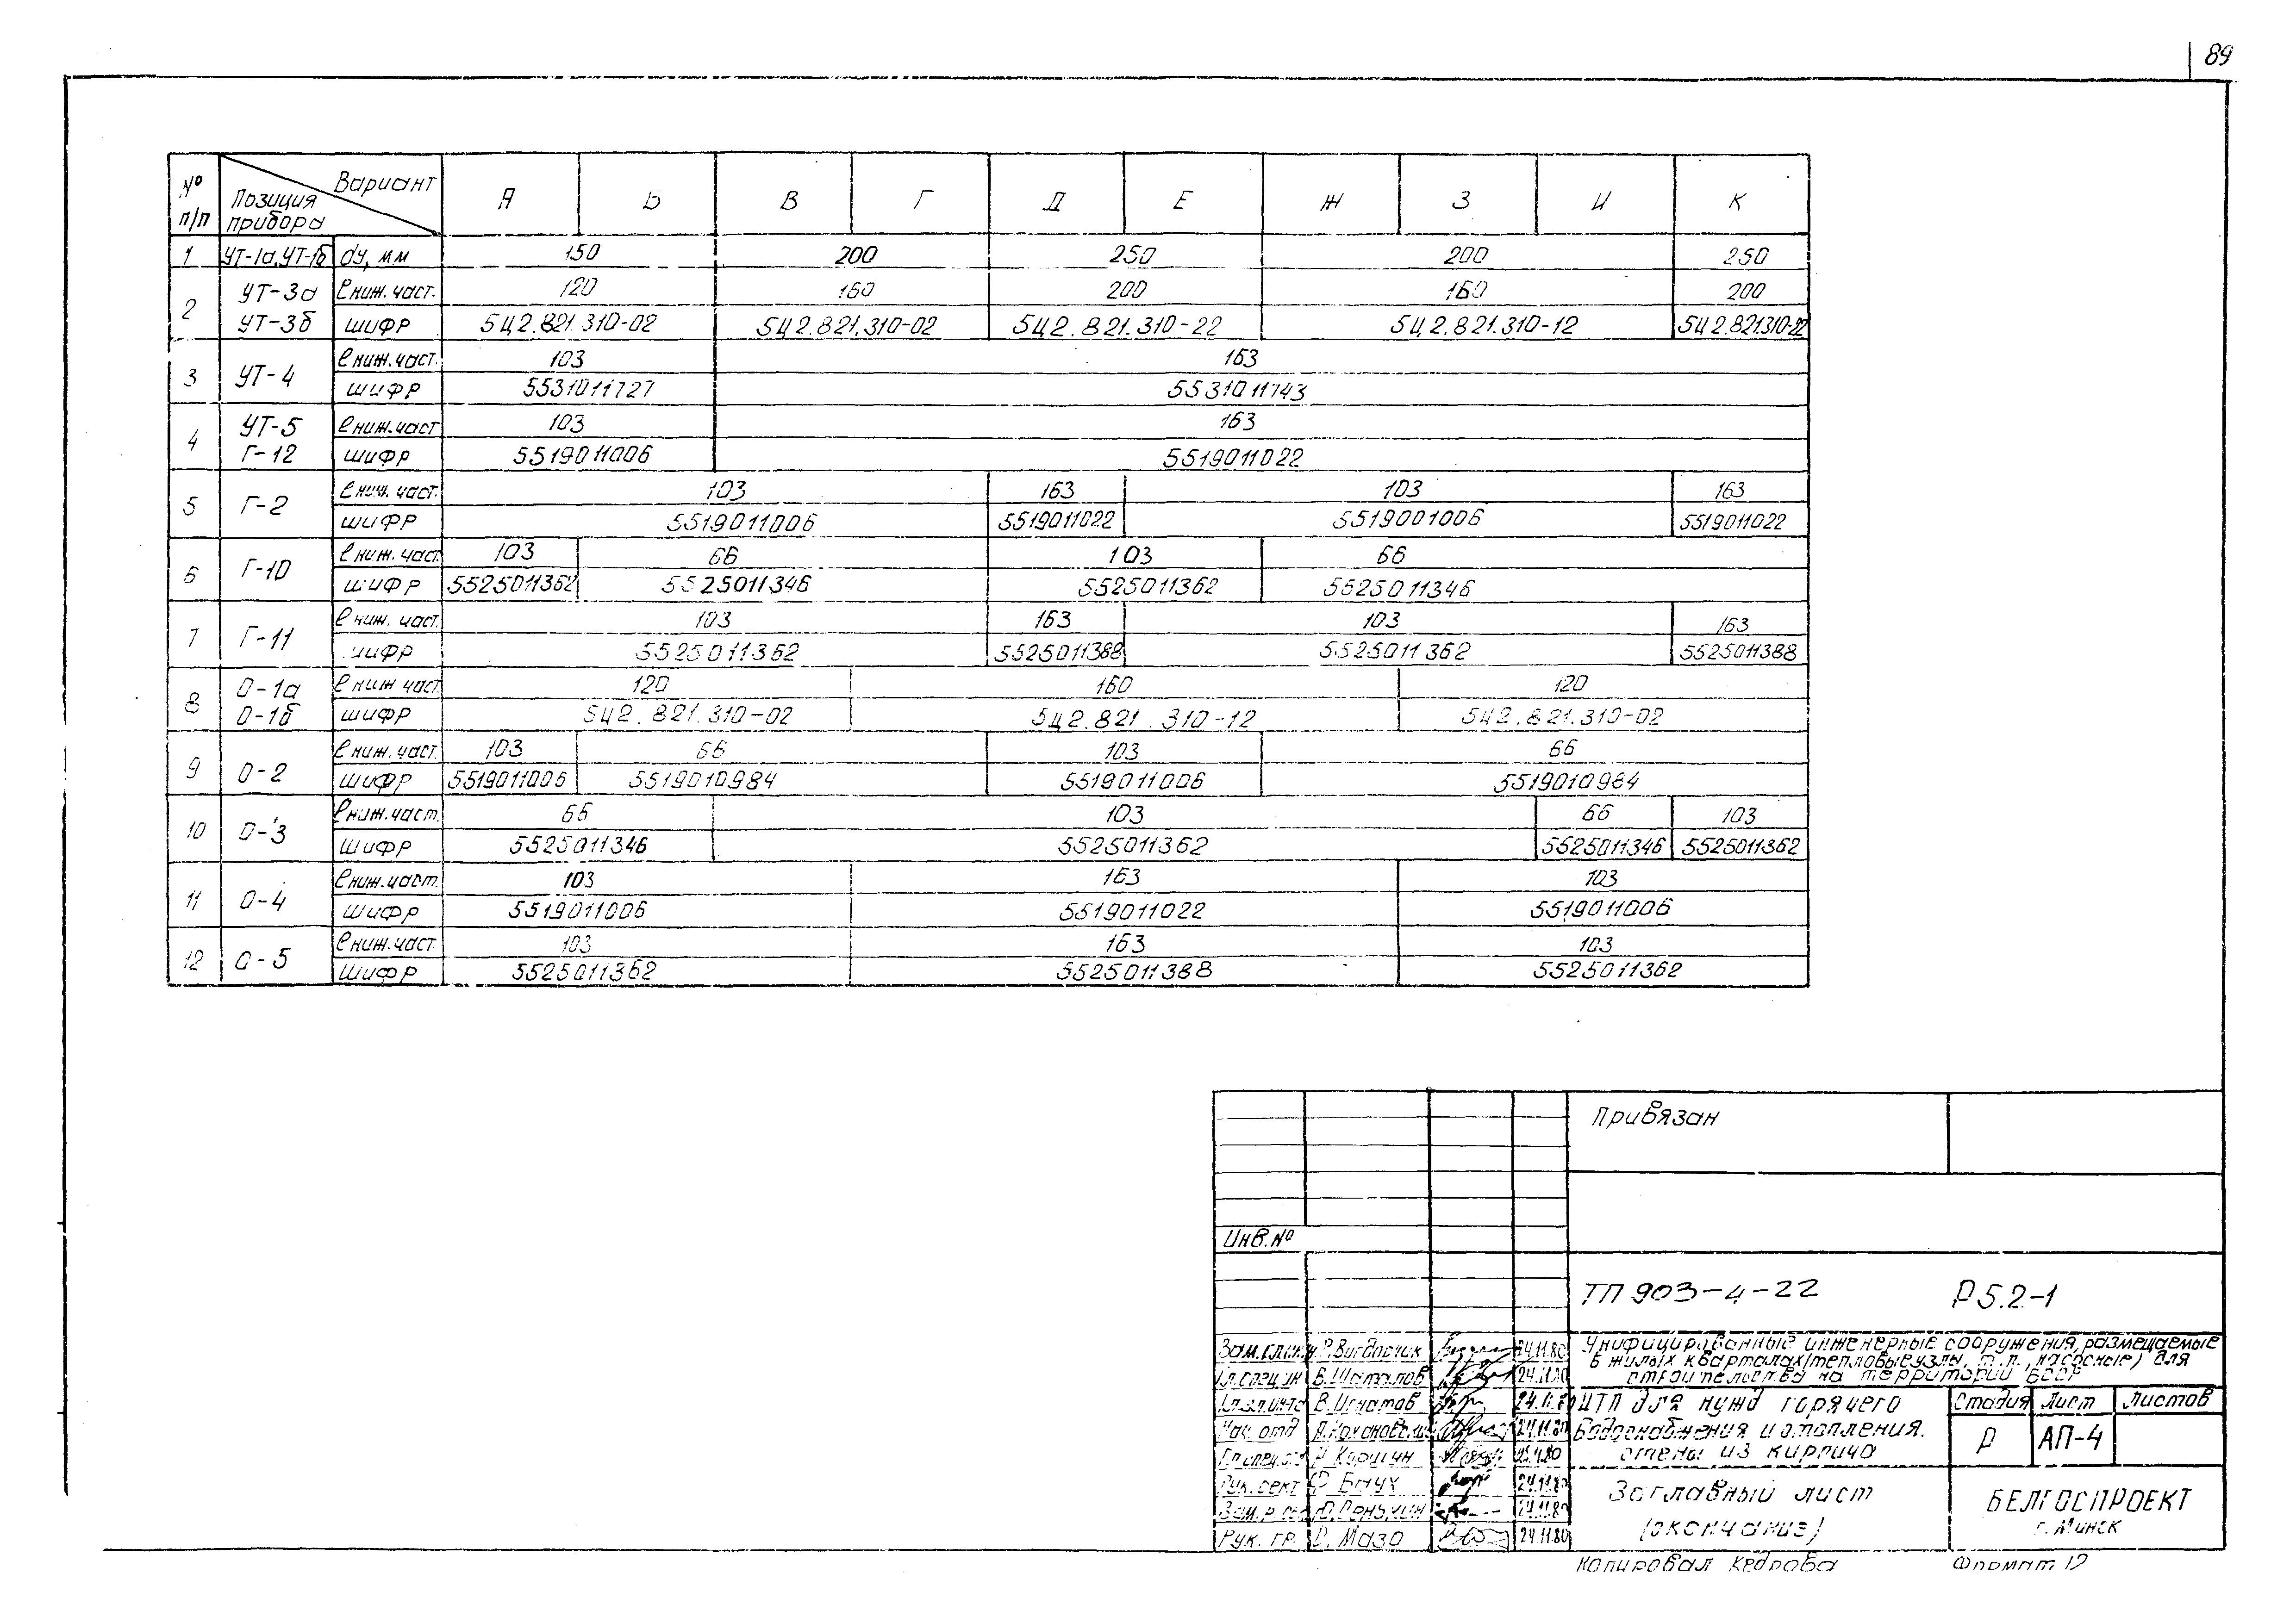 89
№ п/п Позиция прибора Вариант А Б В Г Д Е Ж З И К
1 УТ-1а,УТ-1б dу, мм 150 200 250 200 250
2 УТ-3а УТ-3б ℓ ниж.част. 120 160 200 160 200
шифр 5Ц2.821.310-02 5Ц2.821.310-02 5Ц2.821.310-22 5Ц2.821.310-12 5Ц2.821.310-22
3 УТ-4 ℓ ниж.част. 103 163
шифр 5531011727 5531011743
4 УТ-5 Г-12 ℓ ниж.част 103 163
шифр 5519011006 5519011022
5 Г-2 ℓ ниж. част. 103 163 103 163
шифр 5519011006 5519011022 5519001006 5519011022
6 Г-10 ℓ ниж. част. 103 66 103 66
шифр 5525011362 5525011346 5525011362 5525011346
7 Г-11 ℓ ниж. част. 103 163 103 163
шифр 5525011362 5525011388 5525011362 5525011388
8 О-1а О-1б ℓ ниж част. 120 160 120
шифр 5Ц2.821.310-02 5Ц2.821.310-12 5Ц2.821.310-02
9 О-2 ℓ ниж.част. 103 66 103 66
шифр 5519011006 5519010984 5519011006 5519010984
10 О-3 ℓ ниж.част. 66 103 66 103
шифр 5525011346 5525011362 5525011346 5525011362
11 О-4 ℓ ниж.част. 103 163 103
шифр 5519011006 5519011022 5519011006
12 О-5 ℓ ниж.част. 103 163 103
шифр 5525011362 5525011388 5525011362
Привязан
Инв.№
ТП 903-4-22 Р5.2-1
Унифицированные инженерные сооружения, размещаемые
в жилых кварталах (тепловые узлы, т.п., насосные) для
строительства на территории БССР
Зам.гл.инж 24.11.80
Гл.спец.ин В.Шаталов 24.11.80
В.Игнатов
Нач.отд 24.11.80
Рук.сект Ф Бнух 24.11.80
24.11.80
Рук. гр. Мазо 24.11.80
ЦТП для нужд горячего
водоснабжения и отопления.
стены из кирпича
Стадия Лист Листов
Р АП-4
Заглавный лист
(окончание)
БЕЛГОСПРОЕКТ
г. Минск
Копировал Кедрова Формат 12